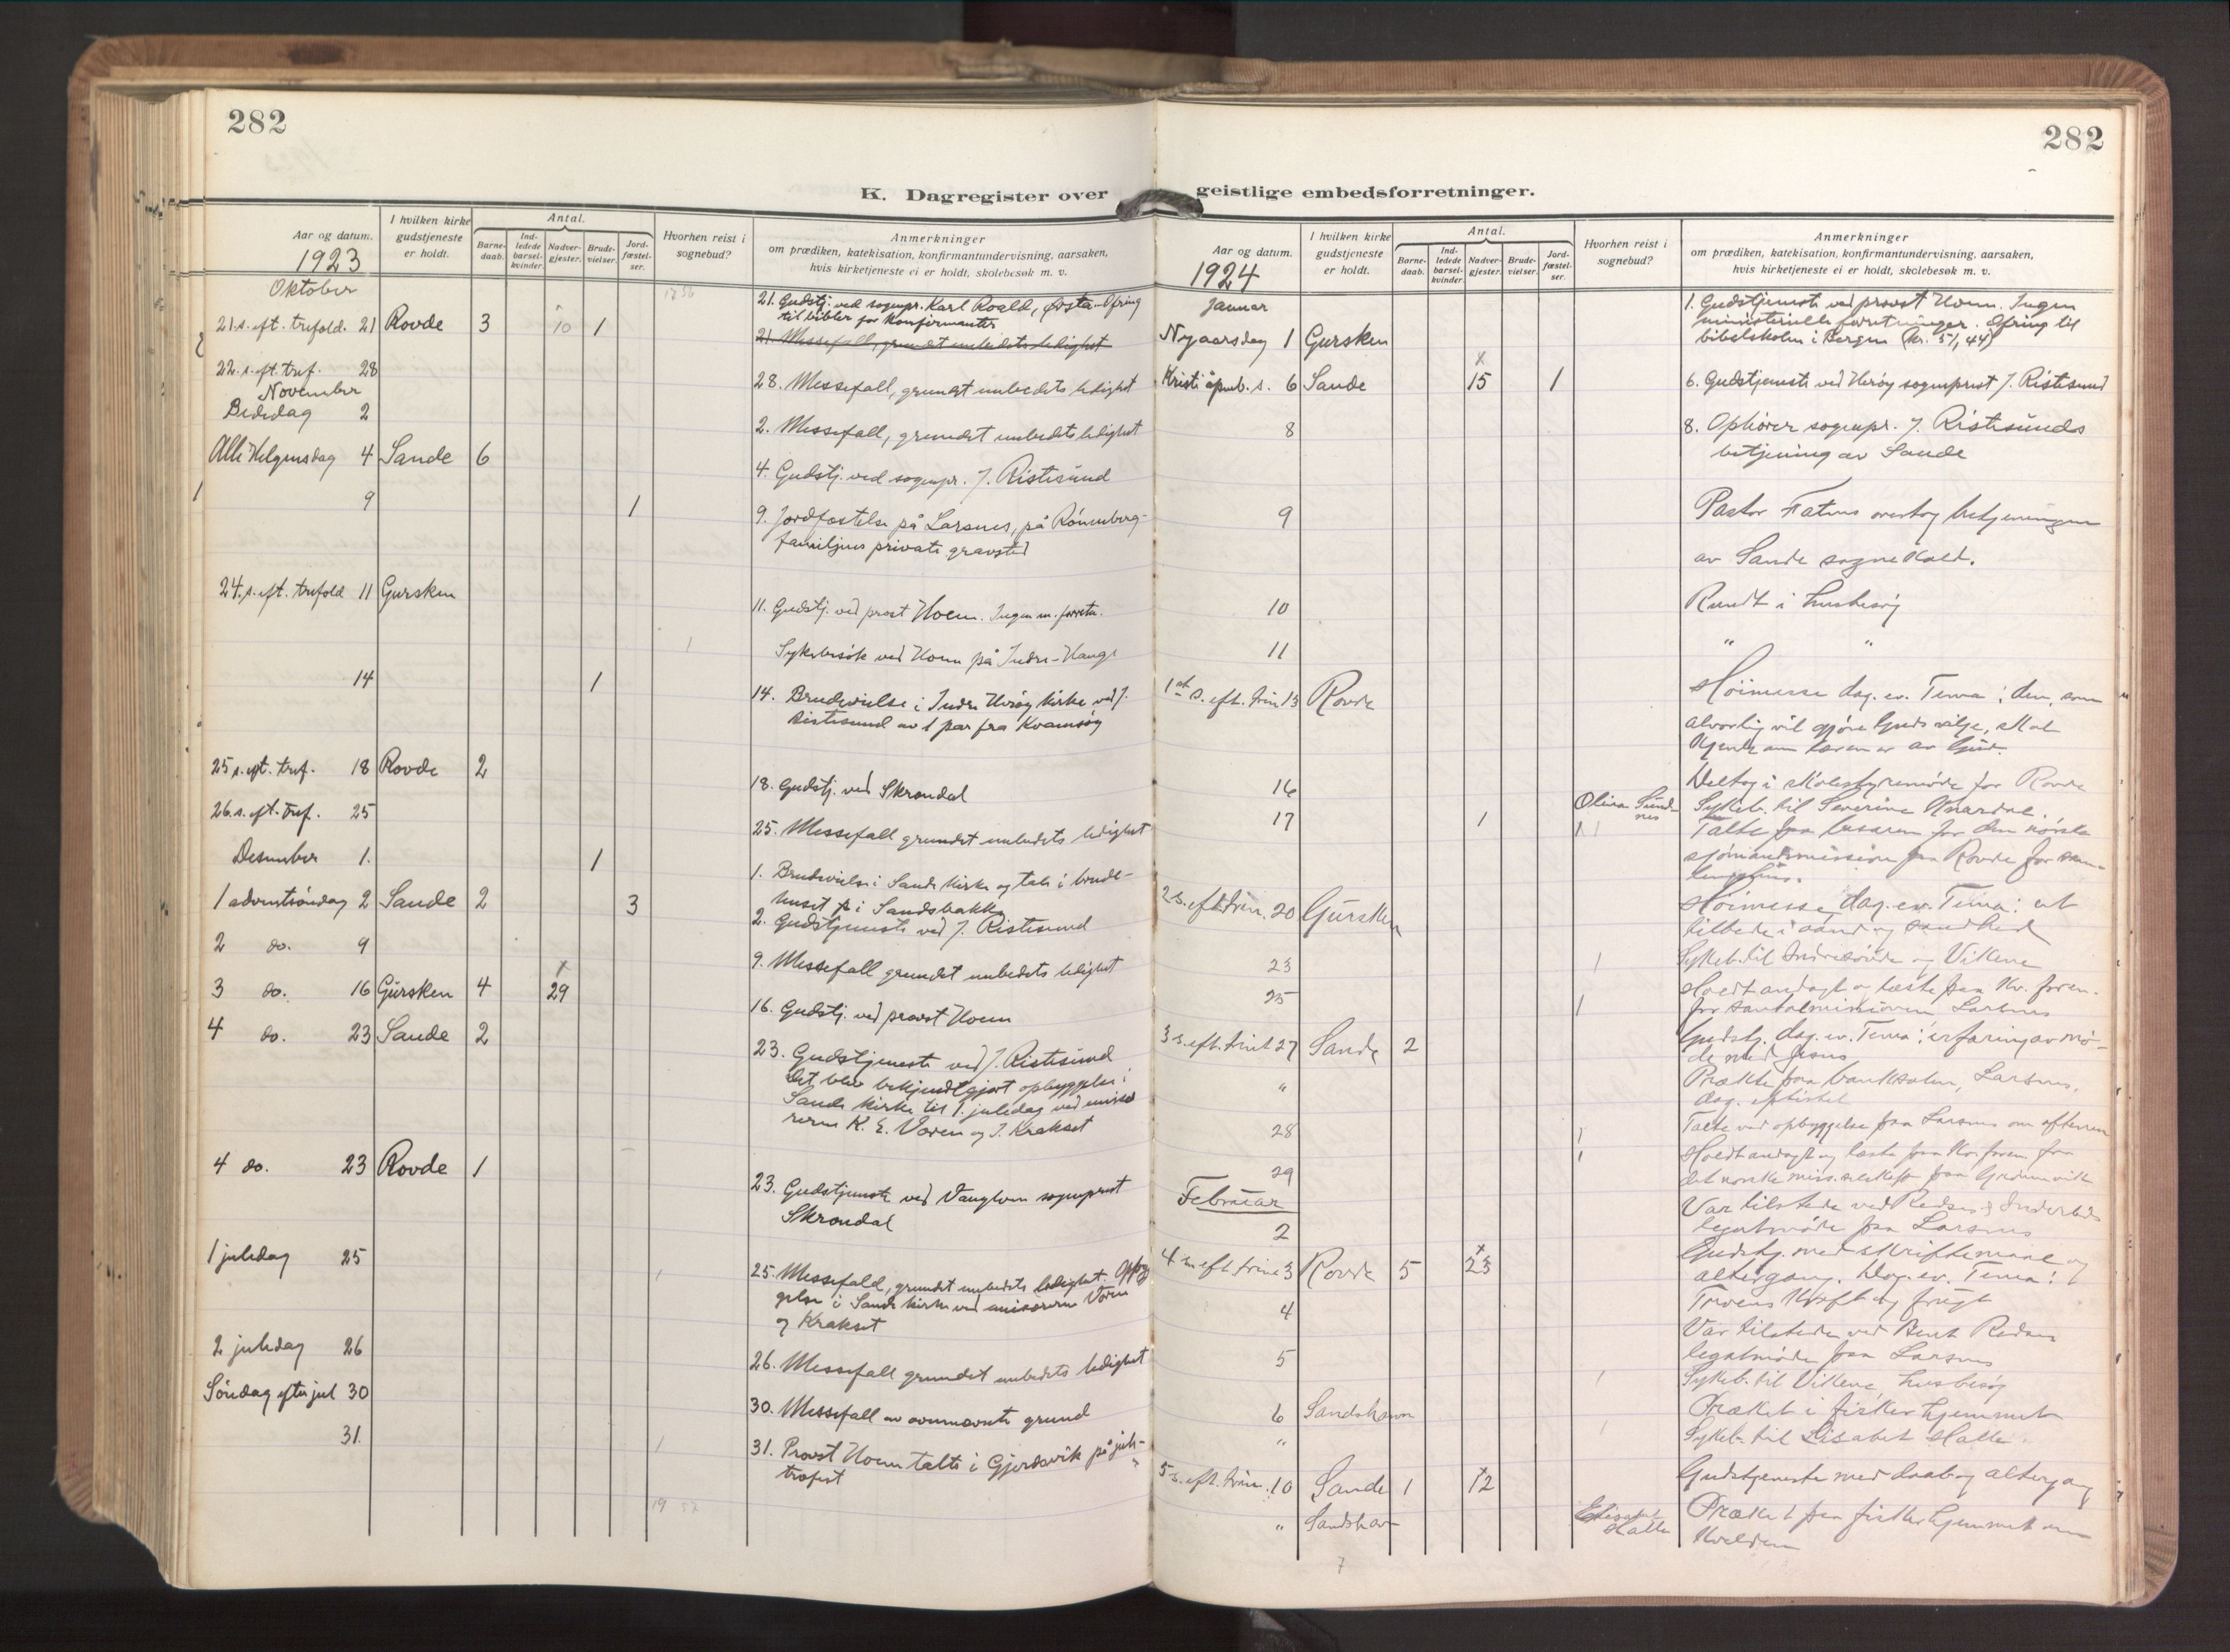 282
K. Dagregister over
Aar og datum.
1923
I hvilken kirke
gudstjeneste
er holdt.
Antal.
Barne-
daab.
Ind-
ledede
barsel-
kvinder.
Nadver-
gjester.
Brude-
vielser.
Jord-
fæstel-
ser.
Hvorhen reist i
sognebud?
Anmerkninger
om prædiken, katekisation, konfirmantundervisning, aarsaken,
hvis kirketjeneste ei er holdt, skolebesøk m. v.
Oktober
21. s. eft. trefold. 21 Rovde 3 10 1
21. Gudstj. ved sognepr. Karl Roald, Ørsta. Ofring
til bibler for konfirmanter
21. Messefall, grundet embedets ledighet
22. s. eft. tref. 28
28. Messefall, grundet embedets ledighet
November
Bededag 2
2. Messefall, grundet embedets ledighet
Alle Helgensdag 4 Sande 6
4. Gudstj. ved sognepr. J. Ristesund
9 1
9. Jordfæstelse på Larsnes, på Rønneberg-
familjens private gravsted
24. s. eft. trefold 11 Gursken
11. Gudstj. ved prost Hoem. Ingen m. forretn.
Sykebesøk ved Hoem på Indre-Hauge
14 1
14. Brudevielse i Indre Herøy kirke ved J.
Ristesund av 1 par fra Kvamsøy
25 s. eft. tref. 18 Rovde 2
18. Gudstj. ved Skrondal
26. s. eft. tref. 25
25. Messefall grundet embedets ledighet
Desember 1. 1
1. Brudevielse i Sande kirke og tale i brude-
huset i Sandsbakk
1 adventsøndag 2 Sande 2 3
2. Gudstjeneste ved J. Ristesund
2 do. 9
9. Messefall grundet embedets ledighet
3 do. 16 Gursken 4 29
16. Gudstj. ved provst Hoem
4 do. 23 Sande 2
23. Gudstjeneste ved J. Ristesund
Det blev bekjendtgjort opbyggelse i
Sande kirke til 1. juledag ved emissæ
rerne K. E. Voren og J. Krakset
4 do. 23 Rovde 1
23. Gudstjeneste ved Vanylven sogneprest
Skrondal
1 juledag 25
25. Messefald, grundet embedets ledighet. Opbyg
gelse i Sande kirke ved emissærerne Voren
og Krakset
2 juledag 26
26. Messefall grundet embedets ledighet
Søndag efter jul 30
30. Messefall av ovennævnte grund
31.
31. Provst Hoem talte i Gjerdsvik på jule-
trefest
282
geistlige embedsforretninger.
Aar og datum.
1924
I hvilken kirke
gudstjeneste
er holdt.
Antal.
Barne-
daab.
Ind-
ledede
barsel-
kvinder.
Nadver-
gjester.
Brude-
vielser.
Jord-
fæstel-
ser.
Hvorhen reist i
sognebud?
Anmerkninger
om prædiken, katekisation, konfirmantundervisning, aarsaken,
hvis kirketjeneste ei er holdt, skolebesøk m. v.
Januar
Nyaarsdag 1 Gursken
1. Gudstjeneste ved provst Hoem. Ingen
ministerielle forretninger. Ofring til
bibelskolen i Bergen (kr. 51,44)
Kristi åpenb. s. 6 Sande 15 1
6. Gudstjeneste ved Herøy sogneprest J. Ristesund
8
8. Ophører sognepr. J. Ristesunds
betjening av Sande
9
Pastor overtog betjeningen
av Sande sognekald.
10
Rundt i husbesøg
11
" "
1st s. eft. trin 13 Rovde
Høimesse dag. ev. Tema: den, som
alvorlig vil gjøre Guds vilje, skal
kjende om læren er av Gud.
16
Deltog i skolestyremøde for Rovde
17 1 Olina Sund
nes
Sykeb. til Severine
Talte paa basaren for den norske
sjømandsmission paa Rovde
2 s. eft. trin. 20 Gursken
Høimesse dag. ev. Tema: at
tilbede i aand og sandhed
23
Sykeb. til og Vikene
25
Holdt andagt og læste paa kv. foren.
for santalmisionen Larsnes
3 s. eft. trin 27 Sande 2
Gudstj. dag. ev. Tema: erfaring av mø-
de med Jesus
"
Præket paa banksalen, Larsnes,
dag. epistel
28
Talte ved opbyggelse paa Larsnes om aftenen
29
Holdt andagt og læste paa kv. foren. for
det norske miss. selskap paa
Februar
2
Var tilstede ved
legatmøde paa Larsnes
4 s. eft. trin 3 Rovde 5 23
Gudstj. med skriftemaal og
altergang. Dag. ev. Tema:
Troens kraft og frugt
4
Var tilstede ved
legatmøde paa Larsnes
5
Sykeb. til Vikene husbesøg
6 Sandshavn
Præket i fiskerhjemmet
"
Sykeb. til Lisabet Halle.
5 s. eft. trin. 10 Sande 1 12
Gudstjeneste med daab og altergang
" Sandshavn
Elisabet
Halle
Præket paa fiskerhjemmet om
kvelden
7